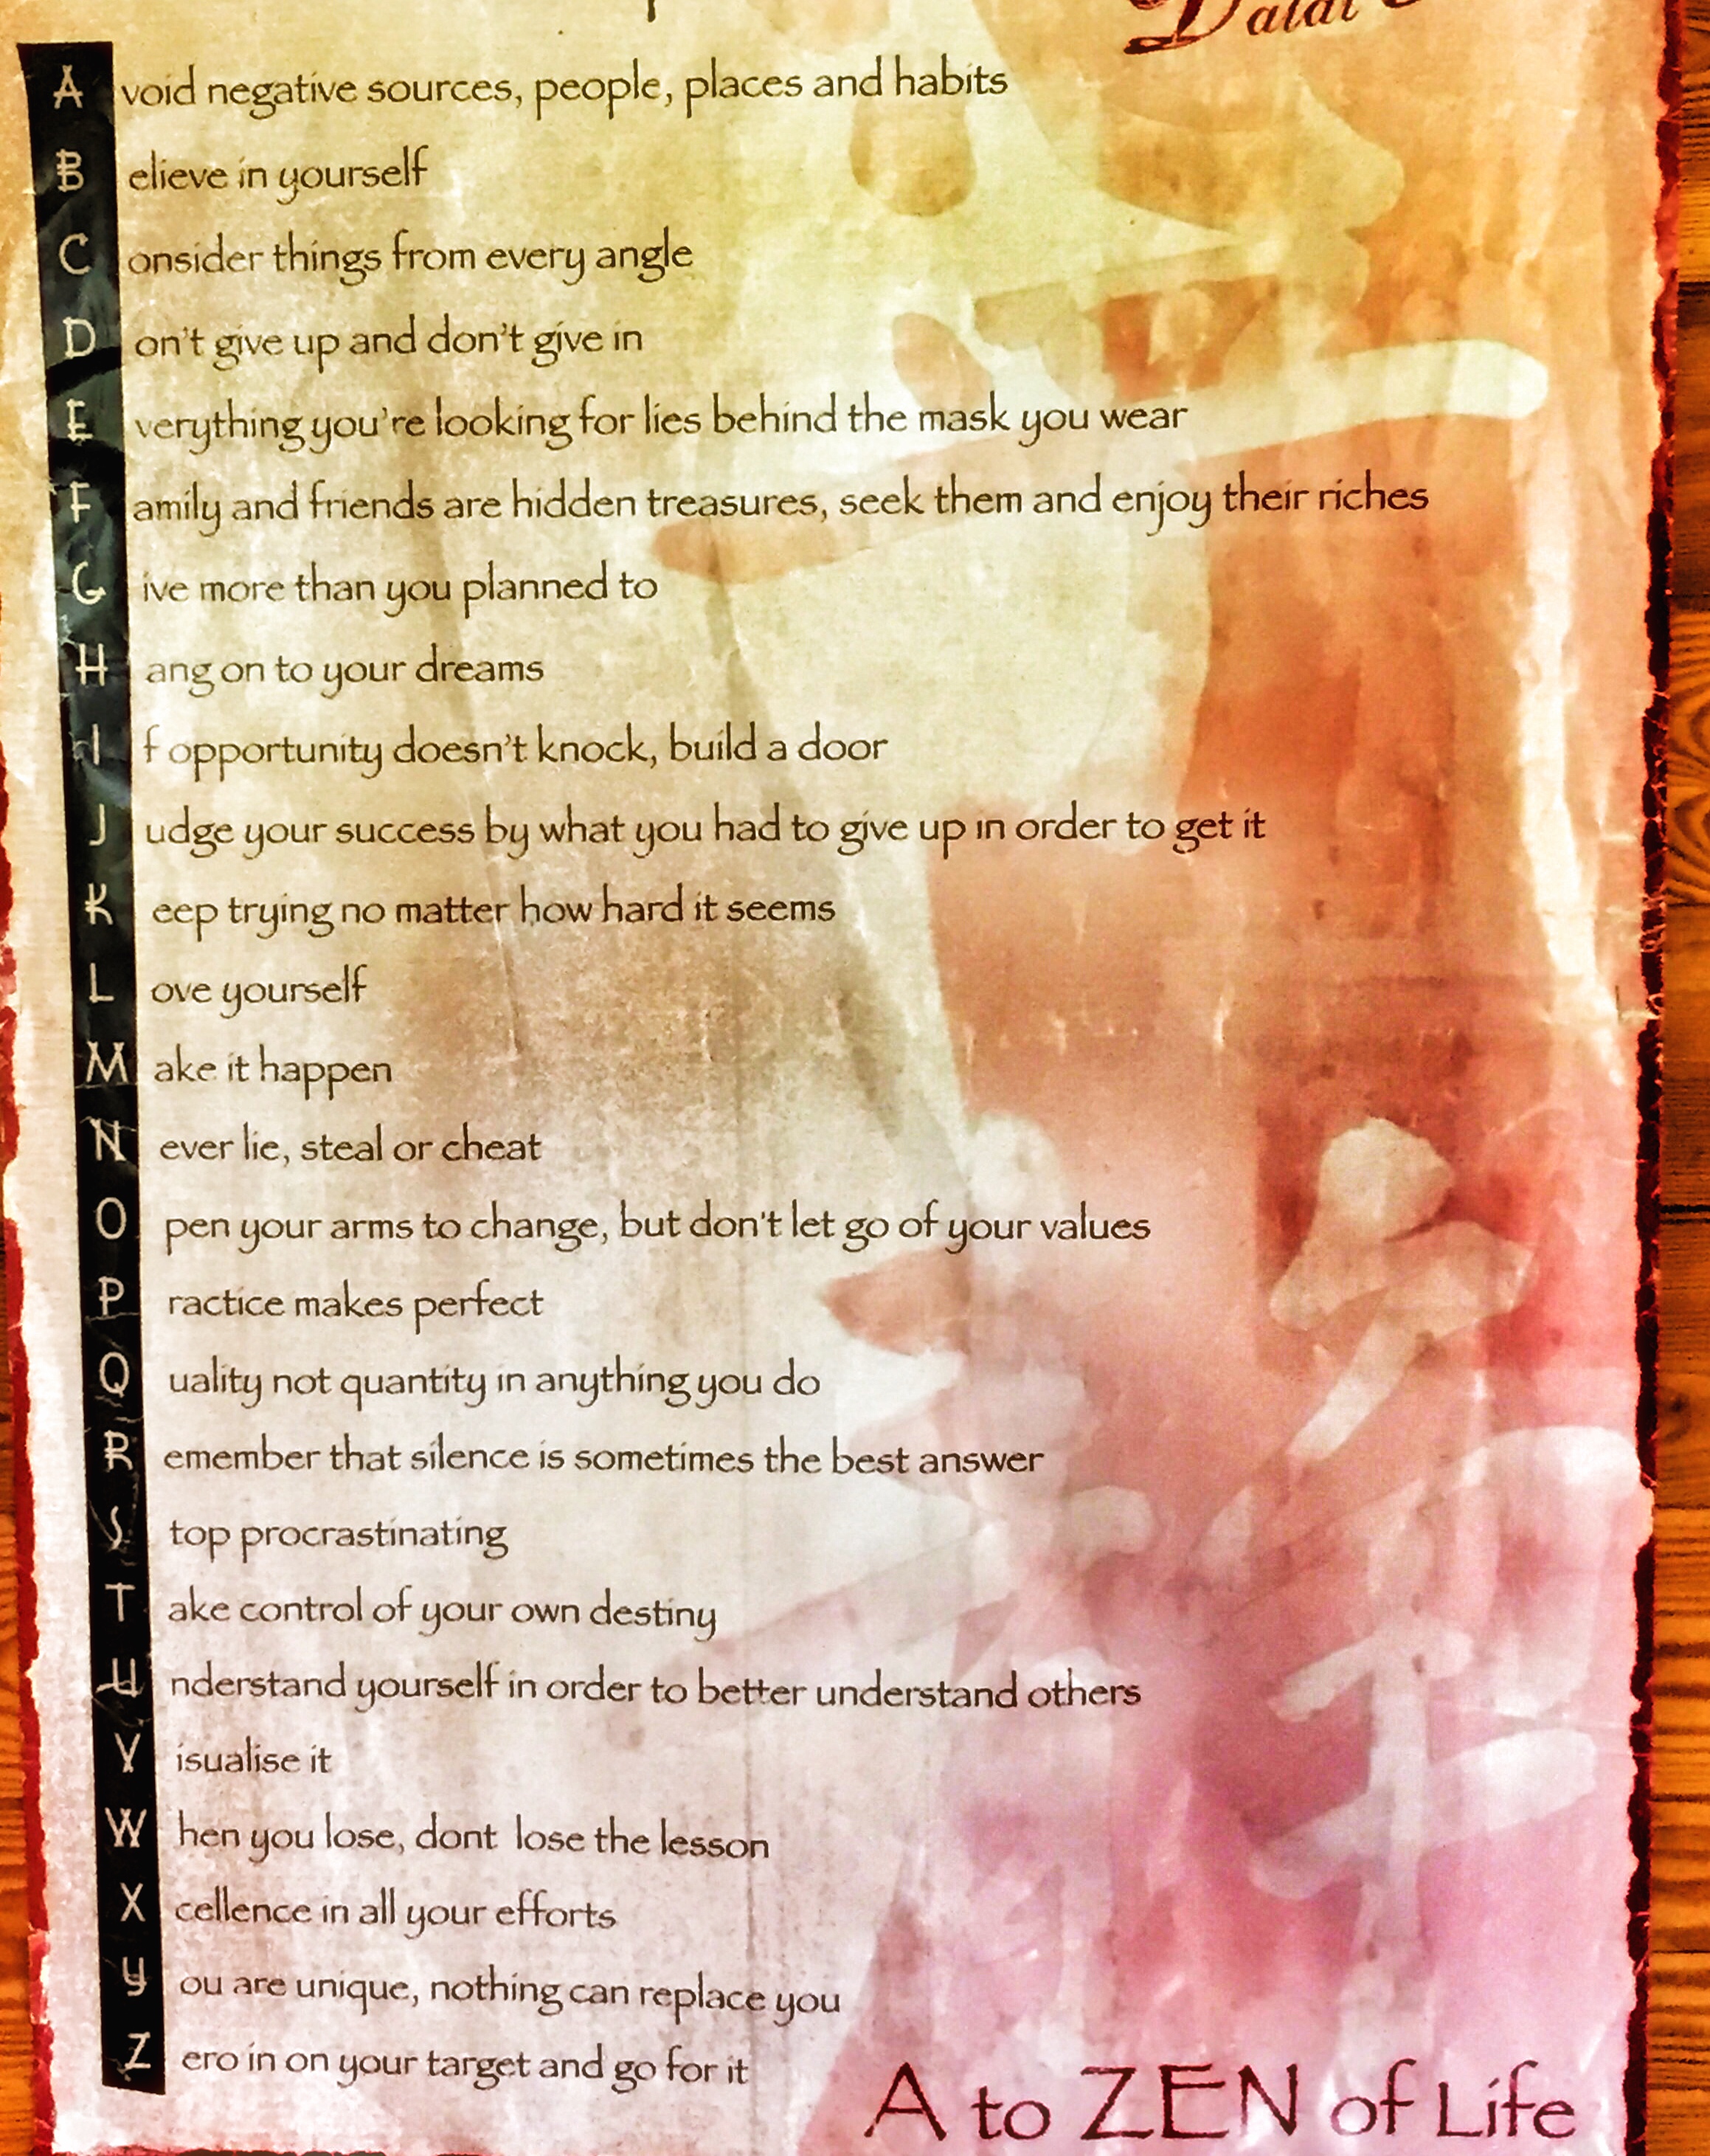 Dalai
Avoid negative sources, people, places and habits
Believe in yourself
Consider things from every angle
Don't give up and don't give in
Everything you're looking for lies behind the mask you wear
Family and friends are hidden treasures, seek them and enjoy their riches
Give more than you planned to
Hang on to your dreams
If opportunity doesn't knock, build a door
Judge your success by what you had to give up in order to get it
Keep trying no matter how hard it seems
Love yourself
Make it happen
Never lie, steal or cheat
Open your arms to change, but don't let go of your values
Practice makes perfect
Quality not quantity in anything you do
Remember that silence is sometimes the best answer
Stop procrastinating
Take control of your own destiny
Understand yourself in order to better understand others
Visualise it
When you lose, dont lose the lesson
Xcellence in all your efforts
You are unique, nothing can replace you
Zero in on your target and go for it
A to ZEN of Life